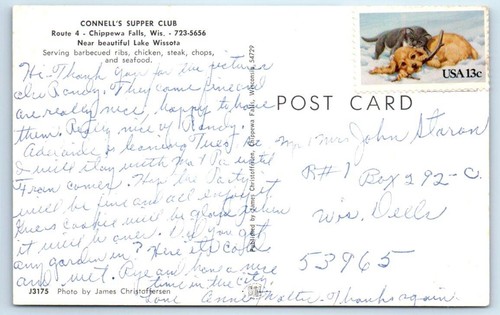 CONNELL'S SUPPER CLUB
Route 4 - Chippewa Falls, Wis. - 723-5656
Near beautiful Lake Wissota
Serving barbecued ribs, chicken, steak, chops,
and seafood.
Hi. Thank you for the pictures
also Randy. They came
are really nice, happy to have
them. Really nice of Randy.
Adelaide is leaving Tues. so
I will stay with Ma & Pa until
Fran comes. Hope the Party
will be fine and all enjoy it
will be glad when
it will be over. Did you get
any garden in? Here it's cold
and wet. Bye and have a nice
time in the city.
Love Anne, thanks again.
POST CARD
USA 13c
Mr & Mrs John Staron
R#1 Box 292-C.
Wis. Dells
53965
Published by James Christoffersen, Chippewa Falls, Wisconsin 54729
J3175 Photo by James Christoffersen